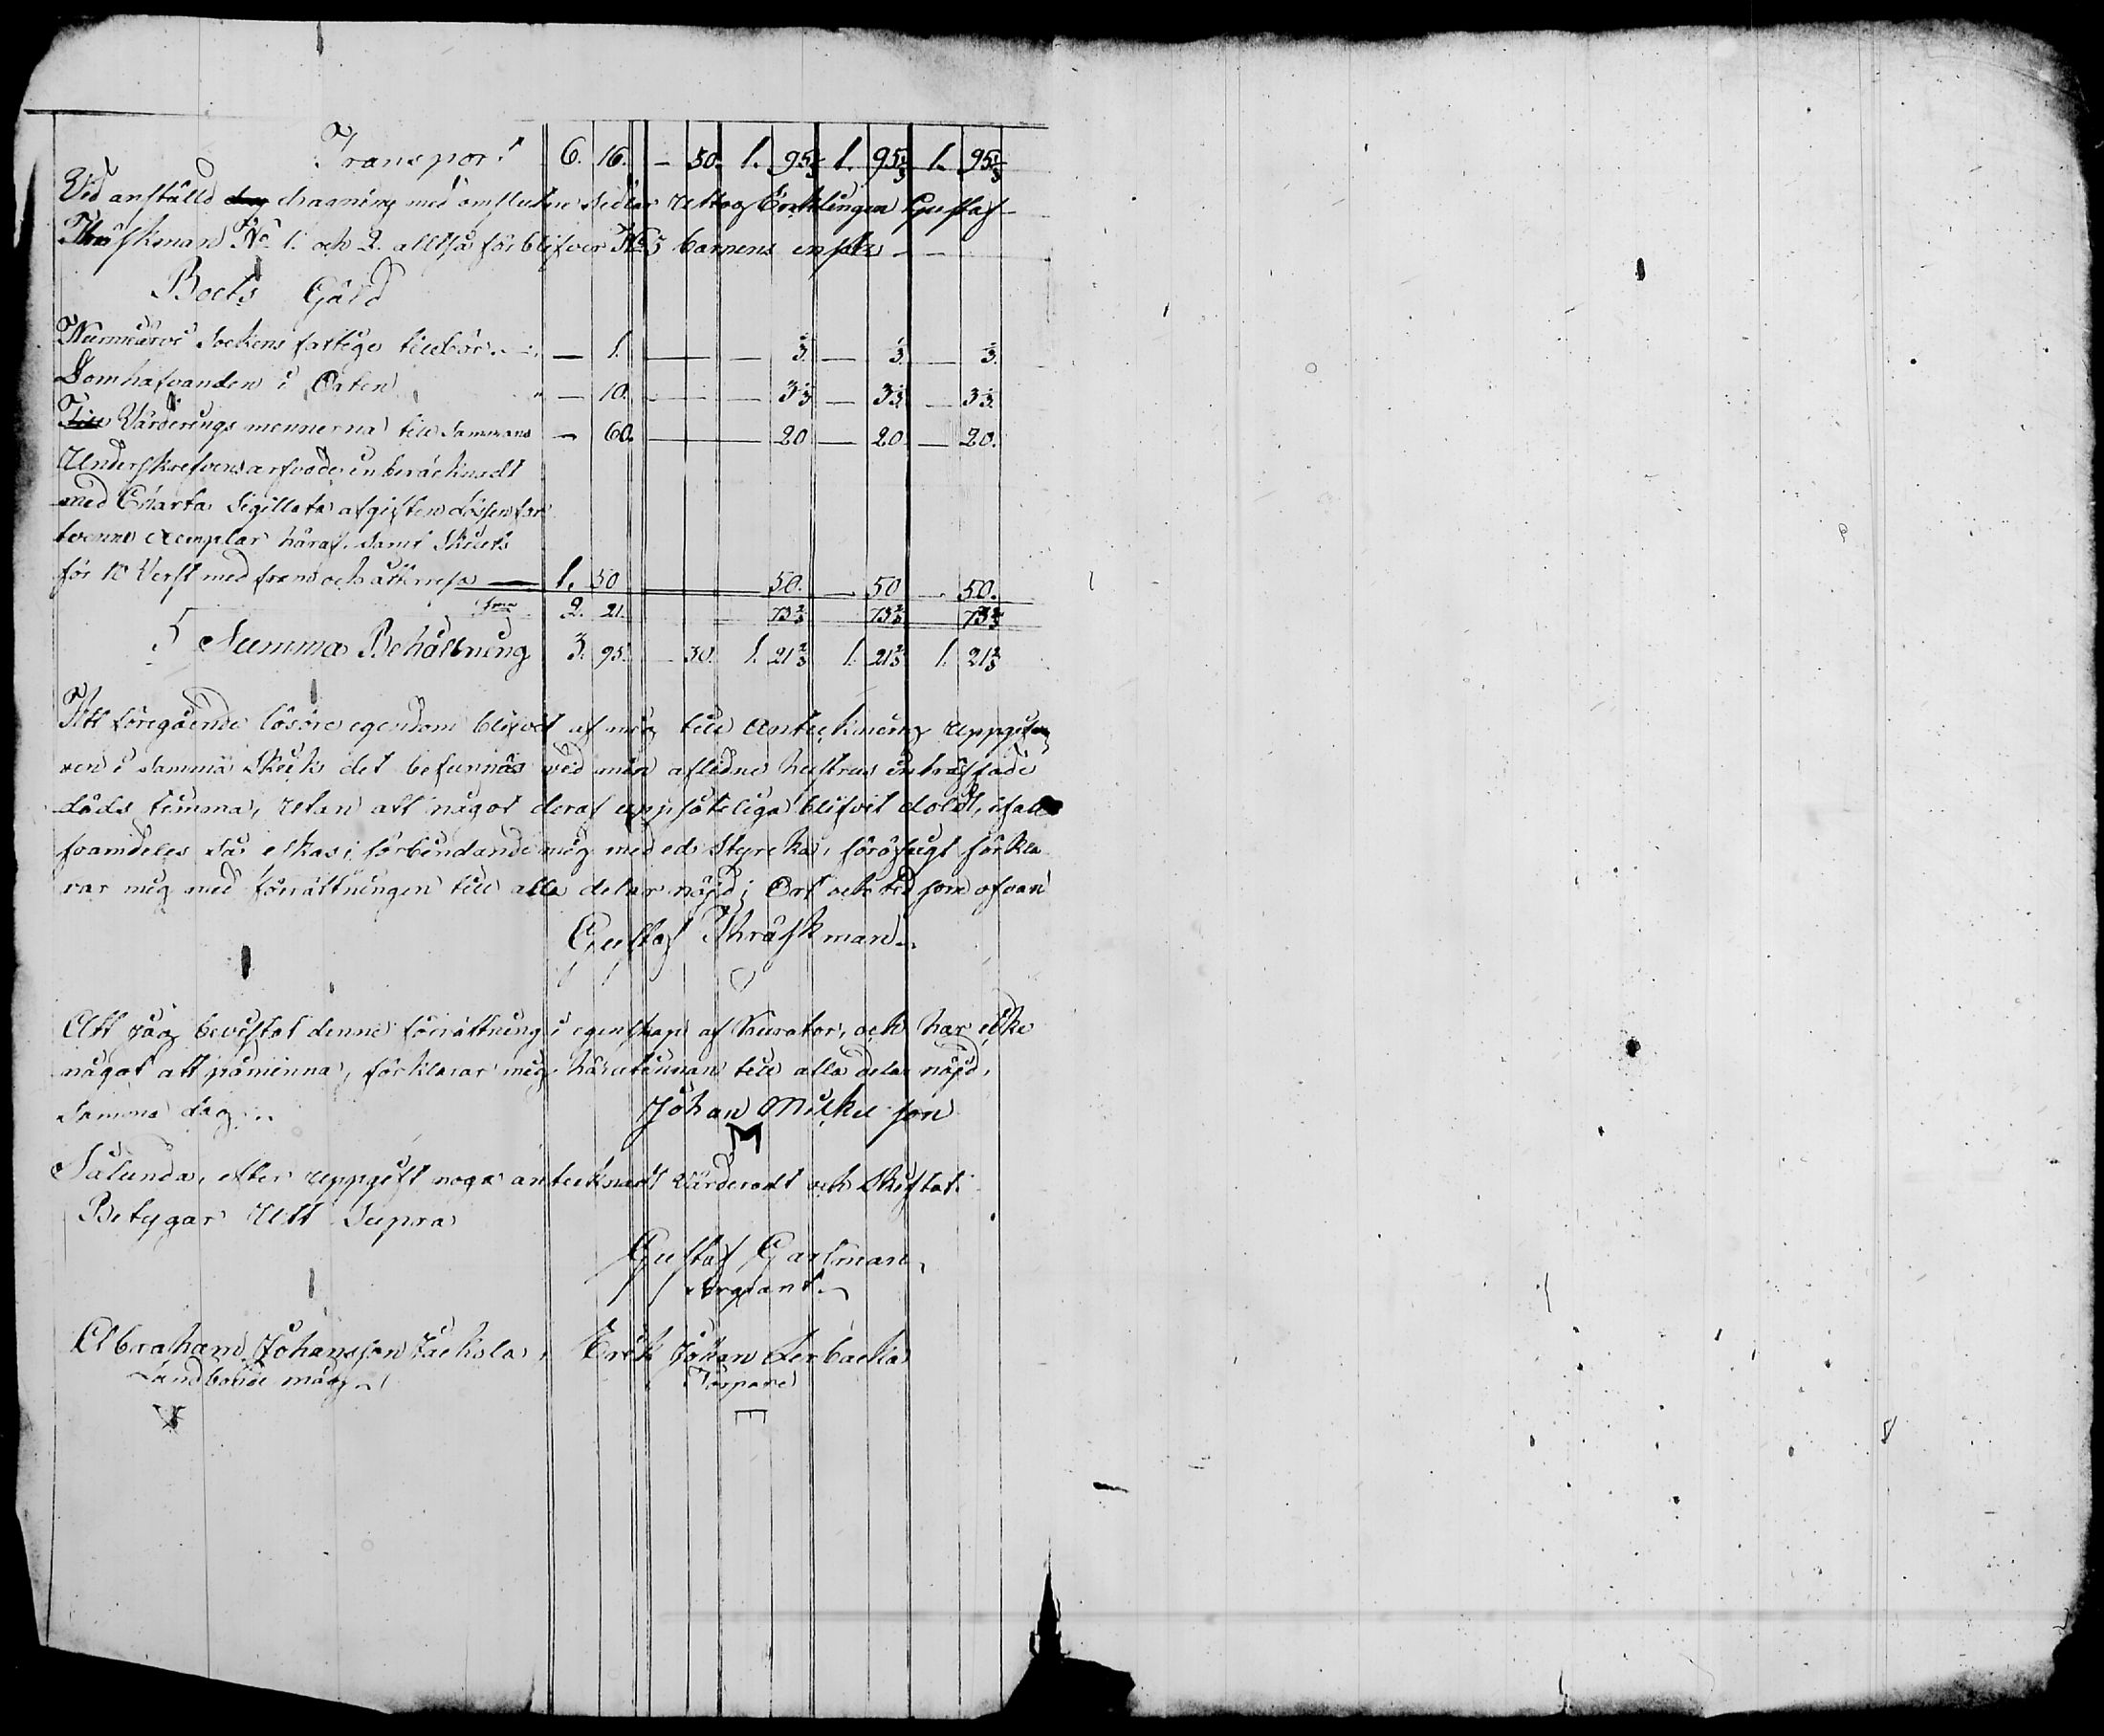 Transport 6. 16. — 30. 1. 95⅓ 1. 95⅓ 1. 95⅓
Vid anställd dragning med omslutne sedlar uttog Enklingen Gustaf
Thräskman No 1. och 2. alltså förblifver No 3 barnens enskt
Boets Gäld
Nummärvi Sockens fattige tillkör. — 1. — — ⅓ — ⅓ — ⅓
Domhafvanden i Orten — 10. — — 3⅓ — 3⅓ — 3⅓
Värderings mennerna till samans — 60. — 20 — 20 — 20.
Underskrefvens arfvode inberäknadt
med Charta Sigillata afgiften till
tvenne exemplar häraf, samt Skuts
för 10 Verst med fram och åtterresa — 1. 50 50. — 50 — 50.
Sma 2. 21. 73⅔ 73⅔ 73⅔
Summa Behållning 3. 95. — 30. 1. 21⅔ 1. 21⅔ 1. 21⅔
Att föregående lösöre egendom blifvet af mig till anteckning uppgifven
i samma skick det befunnås vid min aflidne hustrus inträffade
döds timma, utan att något deraf uppsåteligen blifvit doldt, ifall
framdeles så eskas, förbindande mig med ed styrcka, föröfrigt förkla
rar mig med förrättningen till alla delar nöjd; Ort och tid som ofvan
Gustaf Thräskman
Att jag bevistat denne förrättning i egenskap af Kurator, och har icke
något att påminna, förklarar mig härutinnan till alla delar nöjd,
Samma dag
Johan Mickelson
M
Sålunda, efter uppgift noga antecknadt värderadt och skiftat
Betygar Utt Supra
Gustaf Garlman
Sergeant
Abraham Johansson Jackola, Erick Johan Lerbacka
Landbonde måg Torpare